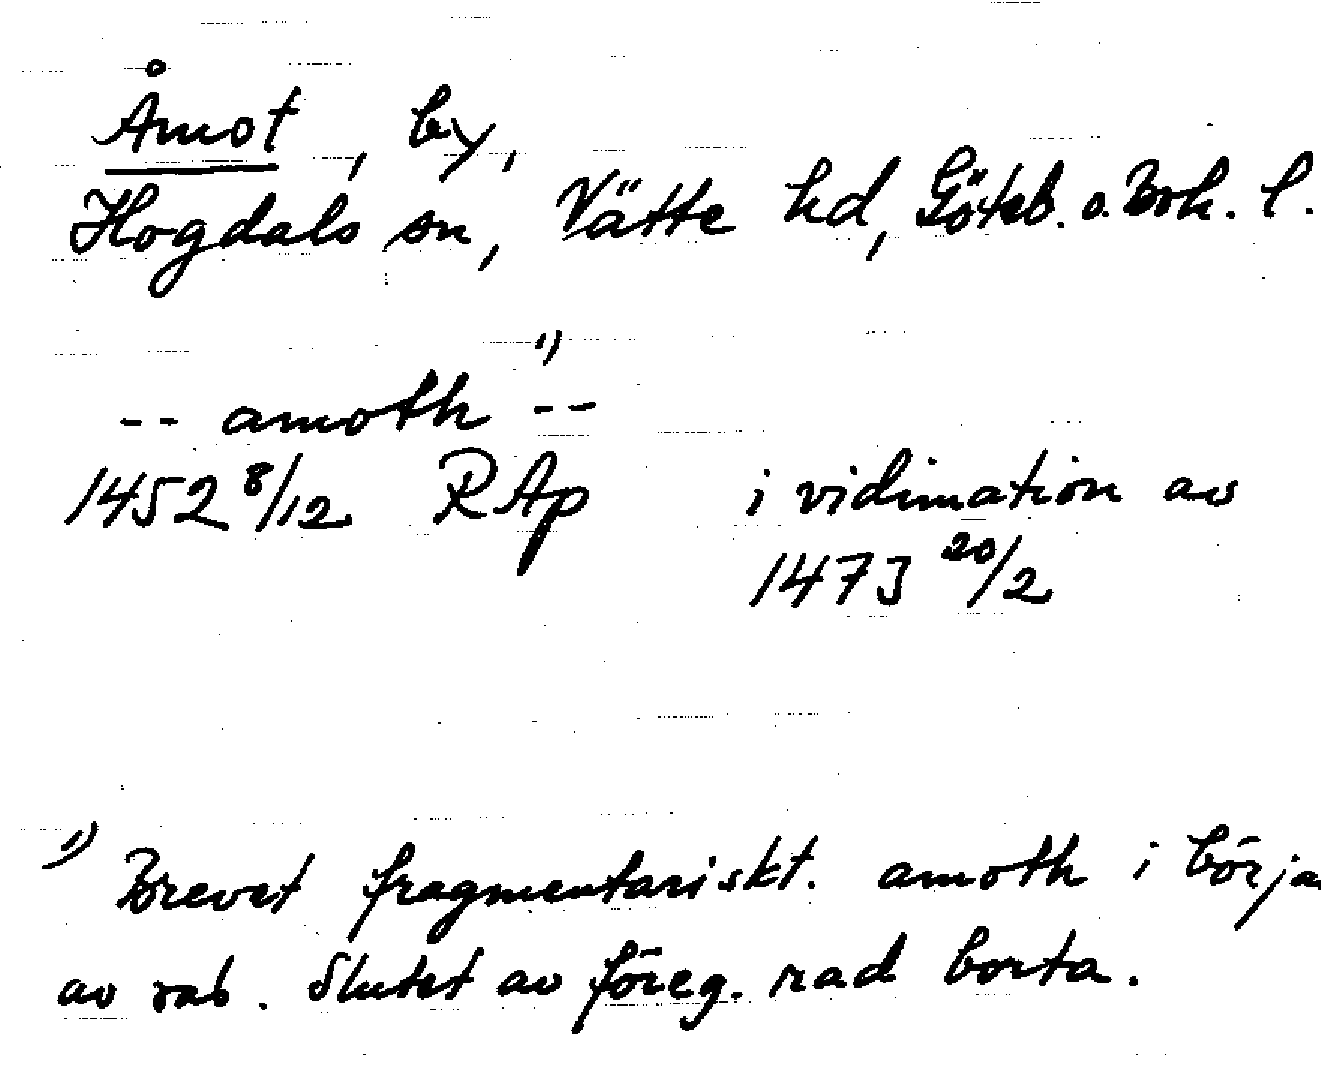 Åmot, by,
Hogdals sn, Vätte hd, Göteb. o. Boh. l.
-- amoth 1) --
1452 8/12 RAp i vidimation av
1473 20/2
1) Brevet fragmentariskt. amoth i börja
av rad. Slutet av föreg. rad borta.